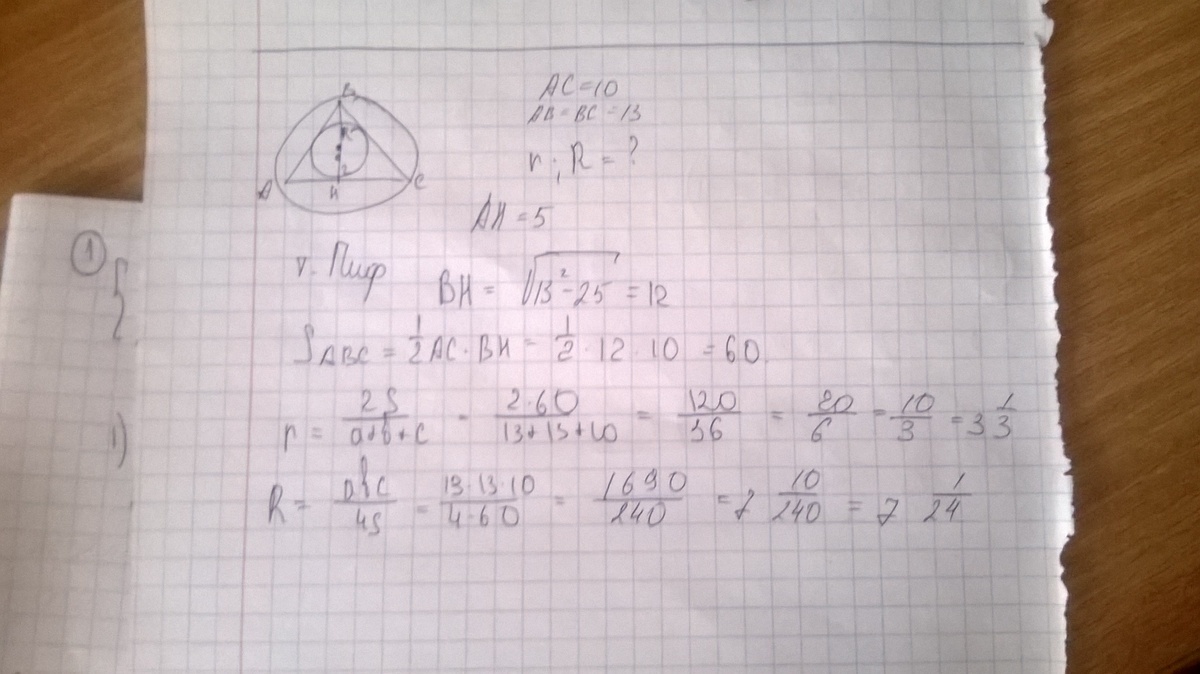 B
R
r
A
H
C
AC=10
AB=BC=13
r; R = ?
AH=5
①
т. Пиф BH = √13²-25 = 12
S ABC = 1/2 AC·BH = 1/2 · 12 · 10 = 60.
1)
r = 2S/a+b+c = 2·60/13+13+10 = 120/36 = 20/6 = 10/3 = 3 1/3
R = abc/4S = 13·13·10/4·60 = 1690/240 = 7 10/240 = 7 1/24